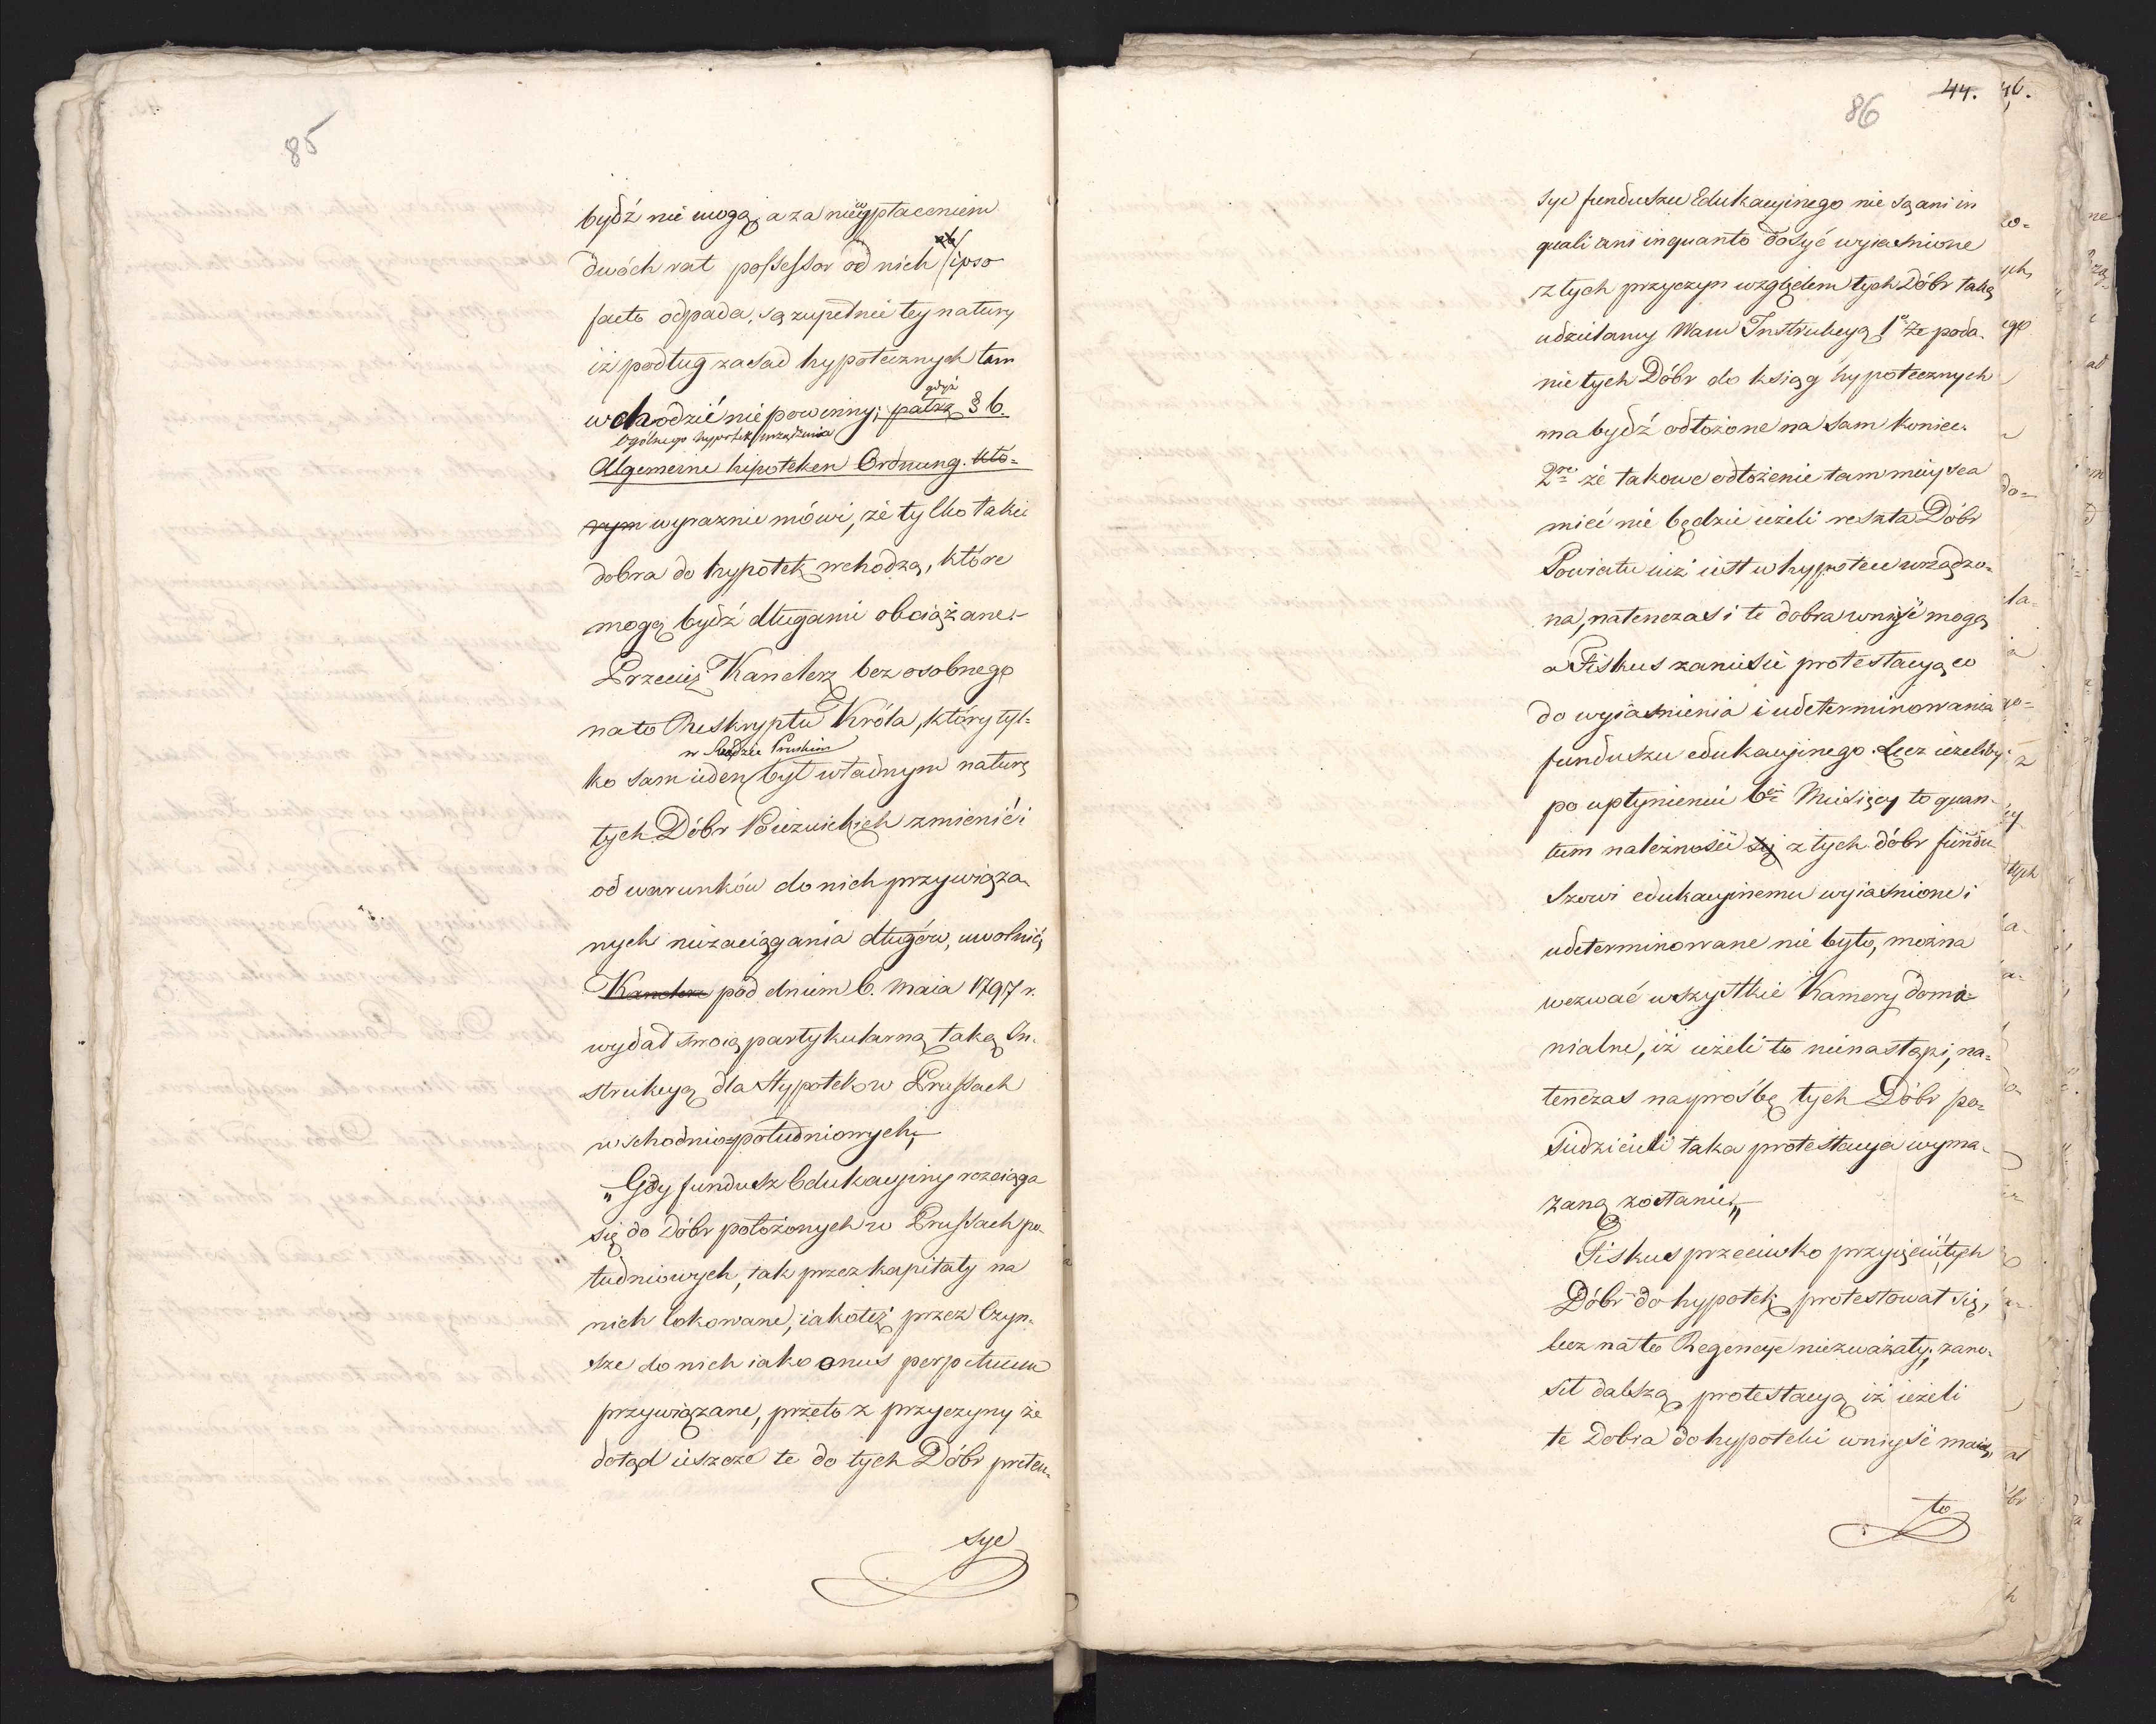 85
bydź nie mogą, a za niewypłaceniem
dwóch rat possessor od nich ipso
facto odpada, są zupełnie tey natury
iż podług zasad hypotecznych tam
gdyż
wchodzić nie powinny; patrz § 6.
Ogólnego hypotek urządzenia
Algemeine hipoteken Ordnung. któ=
rym wyraznie mówi, że tylko takie
dobra do hypotek wchodzą, które
mogą bydź długami obciążane.
Przecież Kanclerz bez osobnego
na to Reskryptu Króla, który tyl=
w Rządzie Pruskim
ko sam ieden był władnym naturę
tych Dóbr Poiezuickich zmienić i
od warunków do nich przywiąza
nych niezaciągania długów, uwolnić,
Kanclerz pod dniem 6. Maia 1797 r.
wydał swoią partykularną taką In=
strukcyą dla Hypotek w Prussach
wschodnio=południowych,
„Gdy fundusz Edukacyiny rozciąga
się do Dóbr położonych w Prussach po=
łudniowych, tak przez kapitały na
nich lokowane, iakoteż przez Czyn=
sze do nich iako onus perpetuum
przywiązane, przeto z przyczyny że
dotąd ieszcze te do tych Dóbr preten=
sye
86
44. 46.
sye funduszu Edukacyinego nie są ani in
quali ani in quanto dosyć wyiasnione
z tych przyczyn względem tych Dóbr taką
udzielamy Wam Instrukcyą 1º że poda=
nie tych Dóbr do ksiąg hypotecznych
ma bydź odłożone na sam koniec.
2re że takowe odłożenie tam mieysca
mieć nie będzie ieżeli reszta Dóbr
Powiatu iuż iest w hypotece urządzo=
na, natenczas i te dobra wniyść mogą
a Fiskus zaniesie protestacyą co
do wyiasnienia i udeterminowania
funduszu edukacyinego. Lecz ieżeliby
po upłynieniu 6ciu Miesięcy to quan=
tum należnosci się z tych dóbr fundu
szowi edukacyinemu wyiasnione i
udeterminowane nie było, można
wezwać wszystkie Kamery domi=
nialne, iż ieżeli to nienastąpi, na=
tenczas na prośbę tych Dóbr po=
siedzicieli taka protestacya wyma=
zaną zostanie„
Fiskus przeciwko przyięciu tych
Dóbr do hypotek protestował się,
lecz na to Regencye niezważały, zano=
sił dalszą protestacyą iż ieżeli
te Dobra do hypoteki wniyść maią,
to